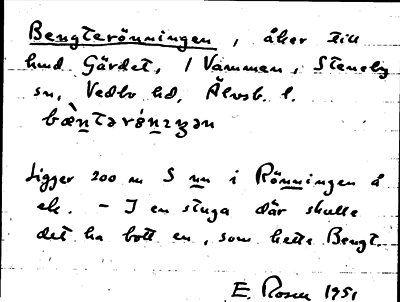 Bengterönningen, åker till
hmd Gärdet, / Vammen, Steneby
sn, Vedbo hd, Älvsb. l.
bæ̀n̲tərön̲ɪŋən
Ligger 200 m S nn i Rönningen å
ek. - I en stuga där skulle
det ha bott en, som hette Bengt.
E. Rosen 1951